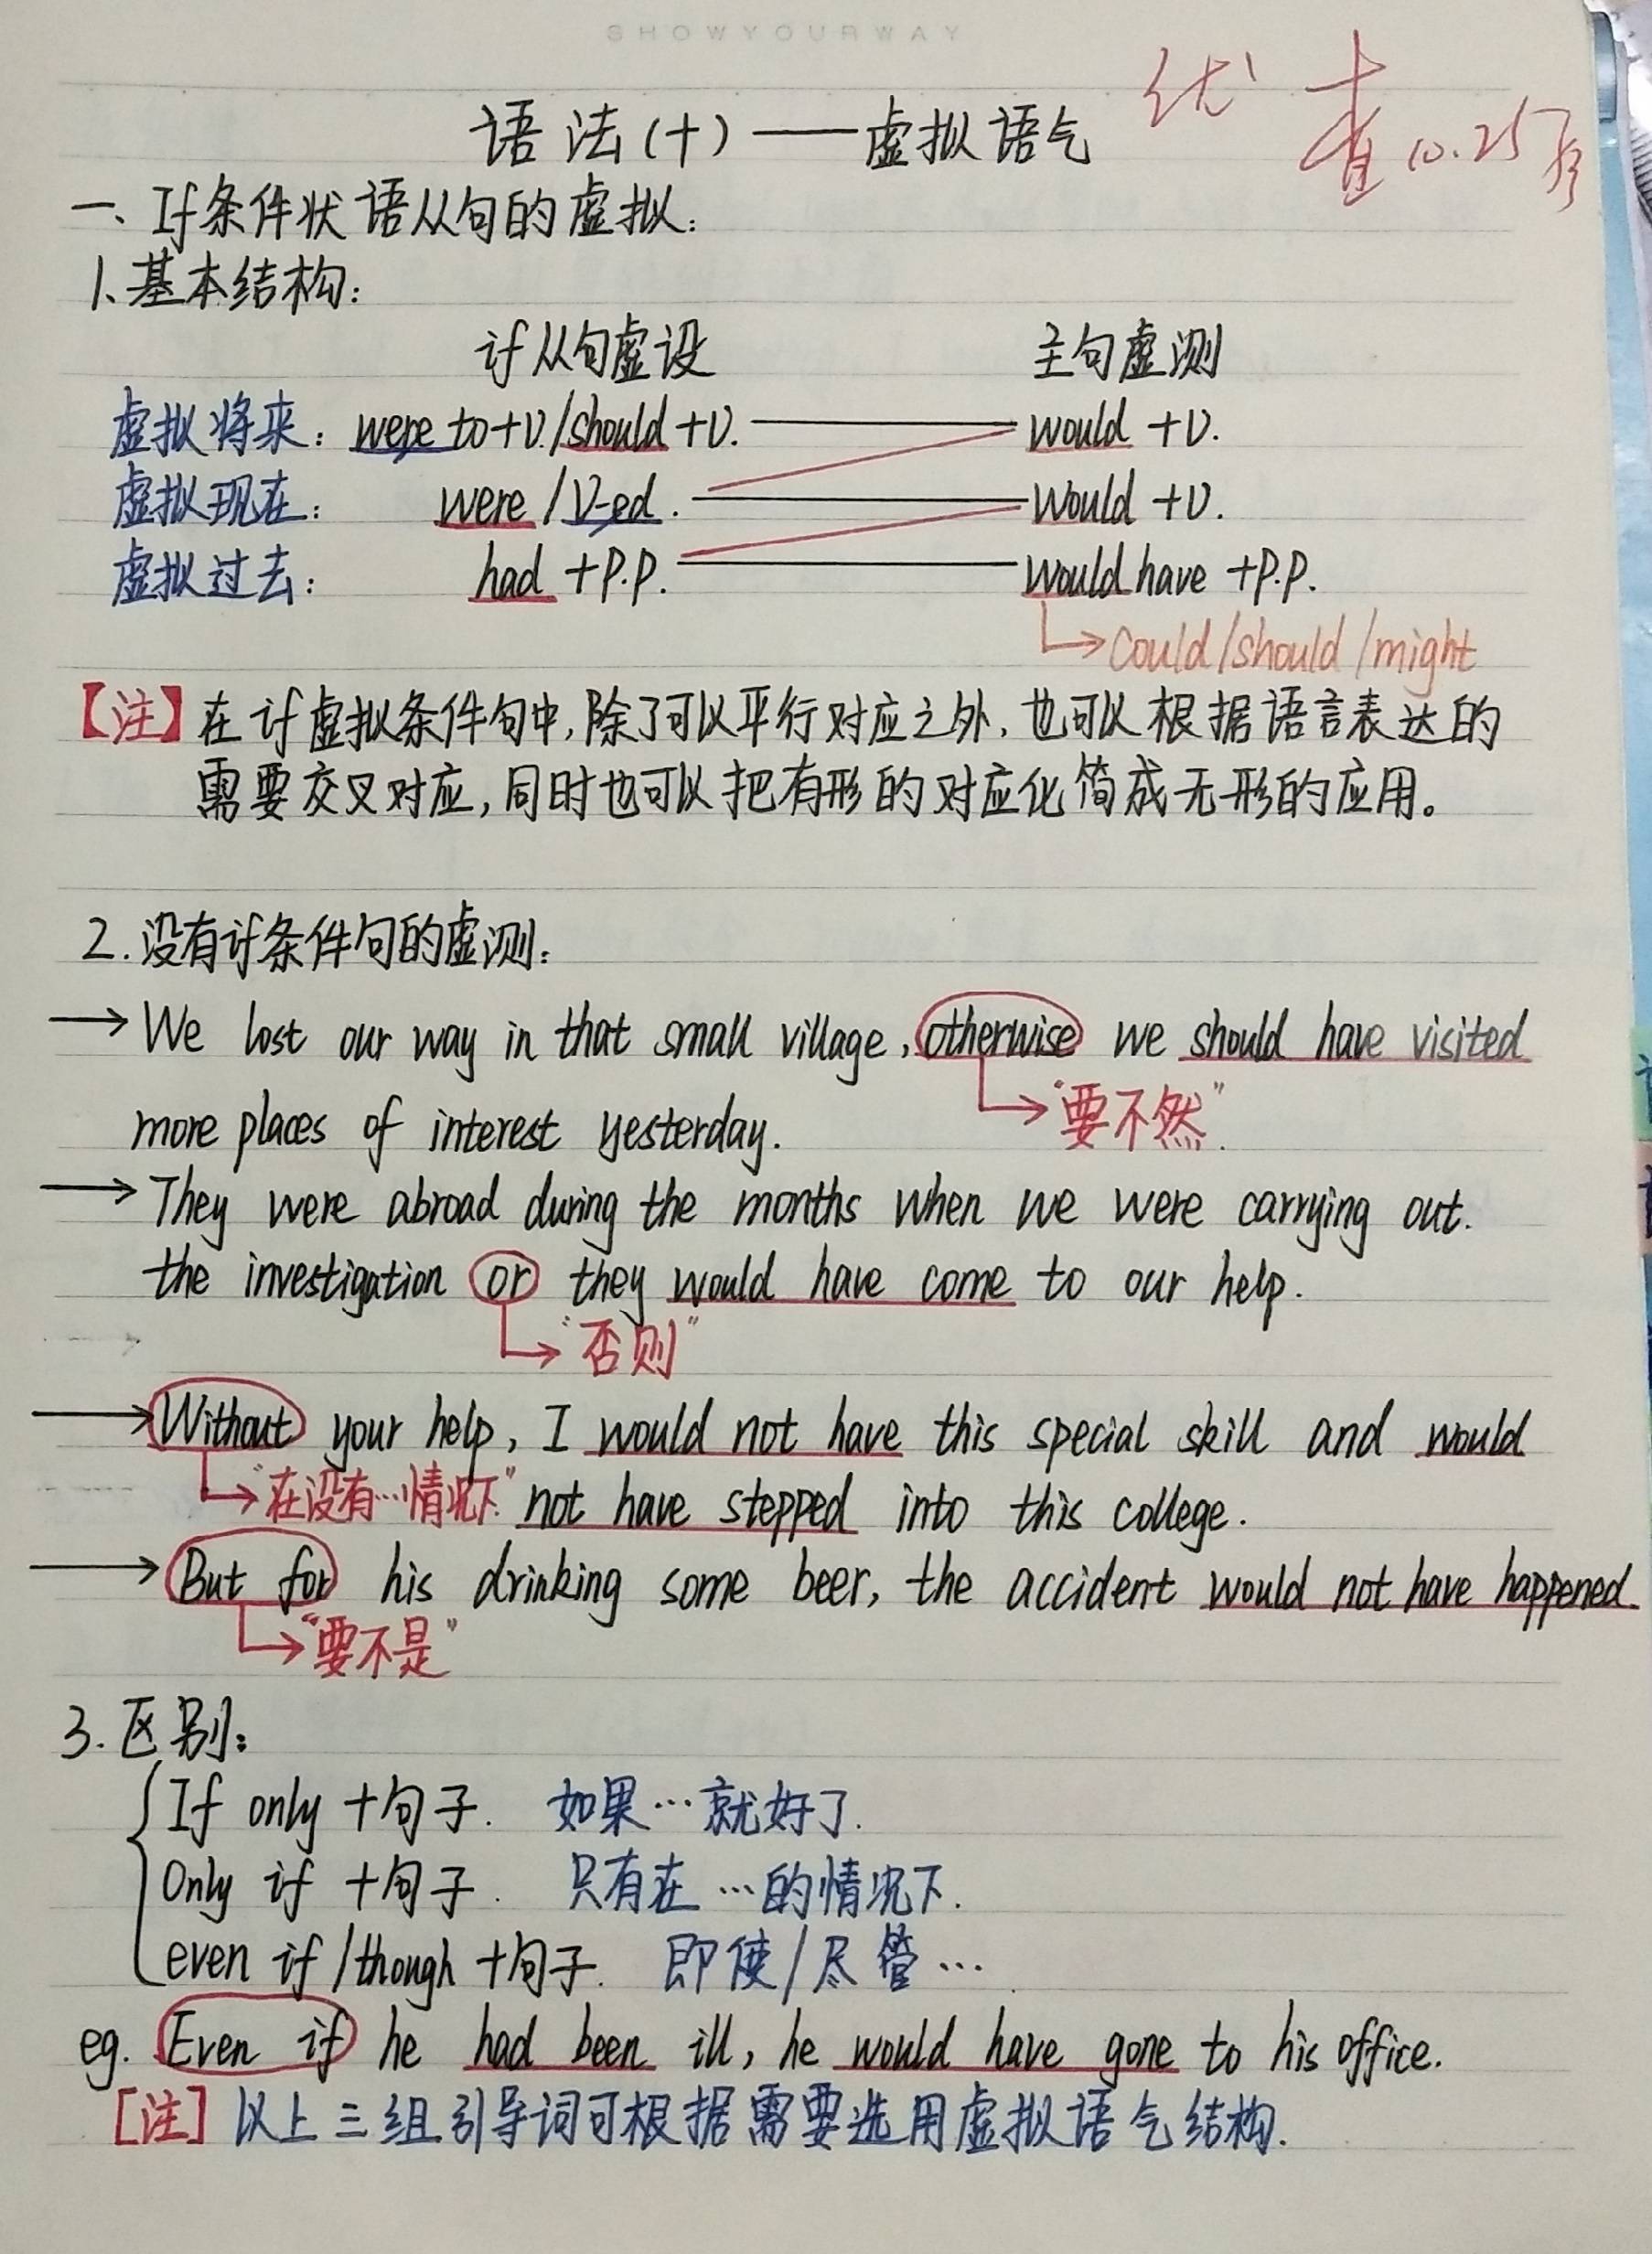 SHOWYOURWAY
语法(十)——虚拟语气 优 查 10.25
一、If条件状语从句的虚拟:
1、基本结构:
if从句虚设 主句虚测
虚拟将来: were to+V./should+V. would +V.
虚拟现在: were / V-ed. would +V.
虚拟过去: had +P.P. would have +P.P.
could/should/might
【注】在if虚拟条件句中,除了可以平行对应之外,也可以根据语言表达的
需要交叉对应,同时也可以把有形的对应化简成无形的应用。
2.没有if条件句的虚测:
We lost our way in that small village, otherwise we should have visited
"要不然"
more places of interest yesterday.
They were abroad during the months when we were carrying out.
the investigation or they would have come to our help.
"否则"
Without your help, I would not have this special skill and would
"在没有…情况下" not have stepped into this college.
But for his drinking some beer, the accident would not have happened.
"要不是"
3.区别:
If only +句子. 如果…就好了.
Only if +句子. 只有在…的情况下.
even if/though +句子. 即使/尽管…
eg. Even if he had been ill, he would have gone to his office.
[注] 以上三组引导词可根据需要选用虚拟语气结构.